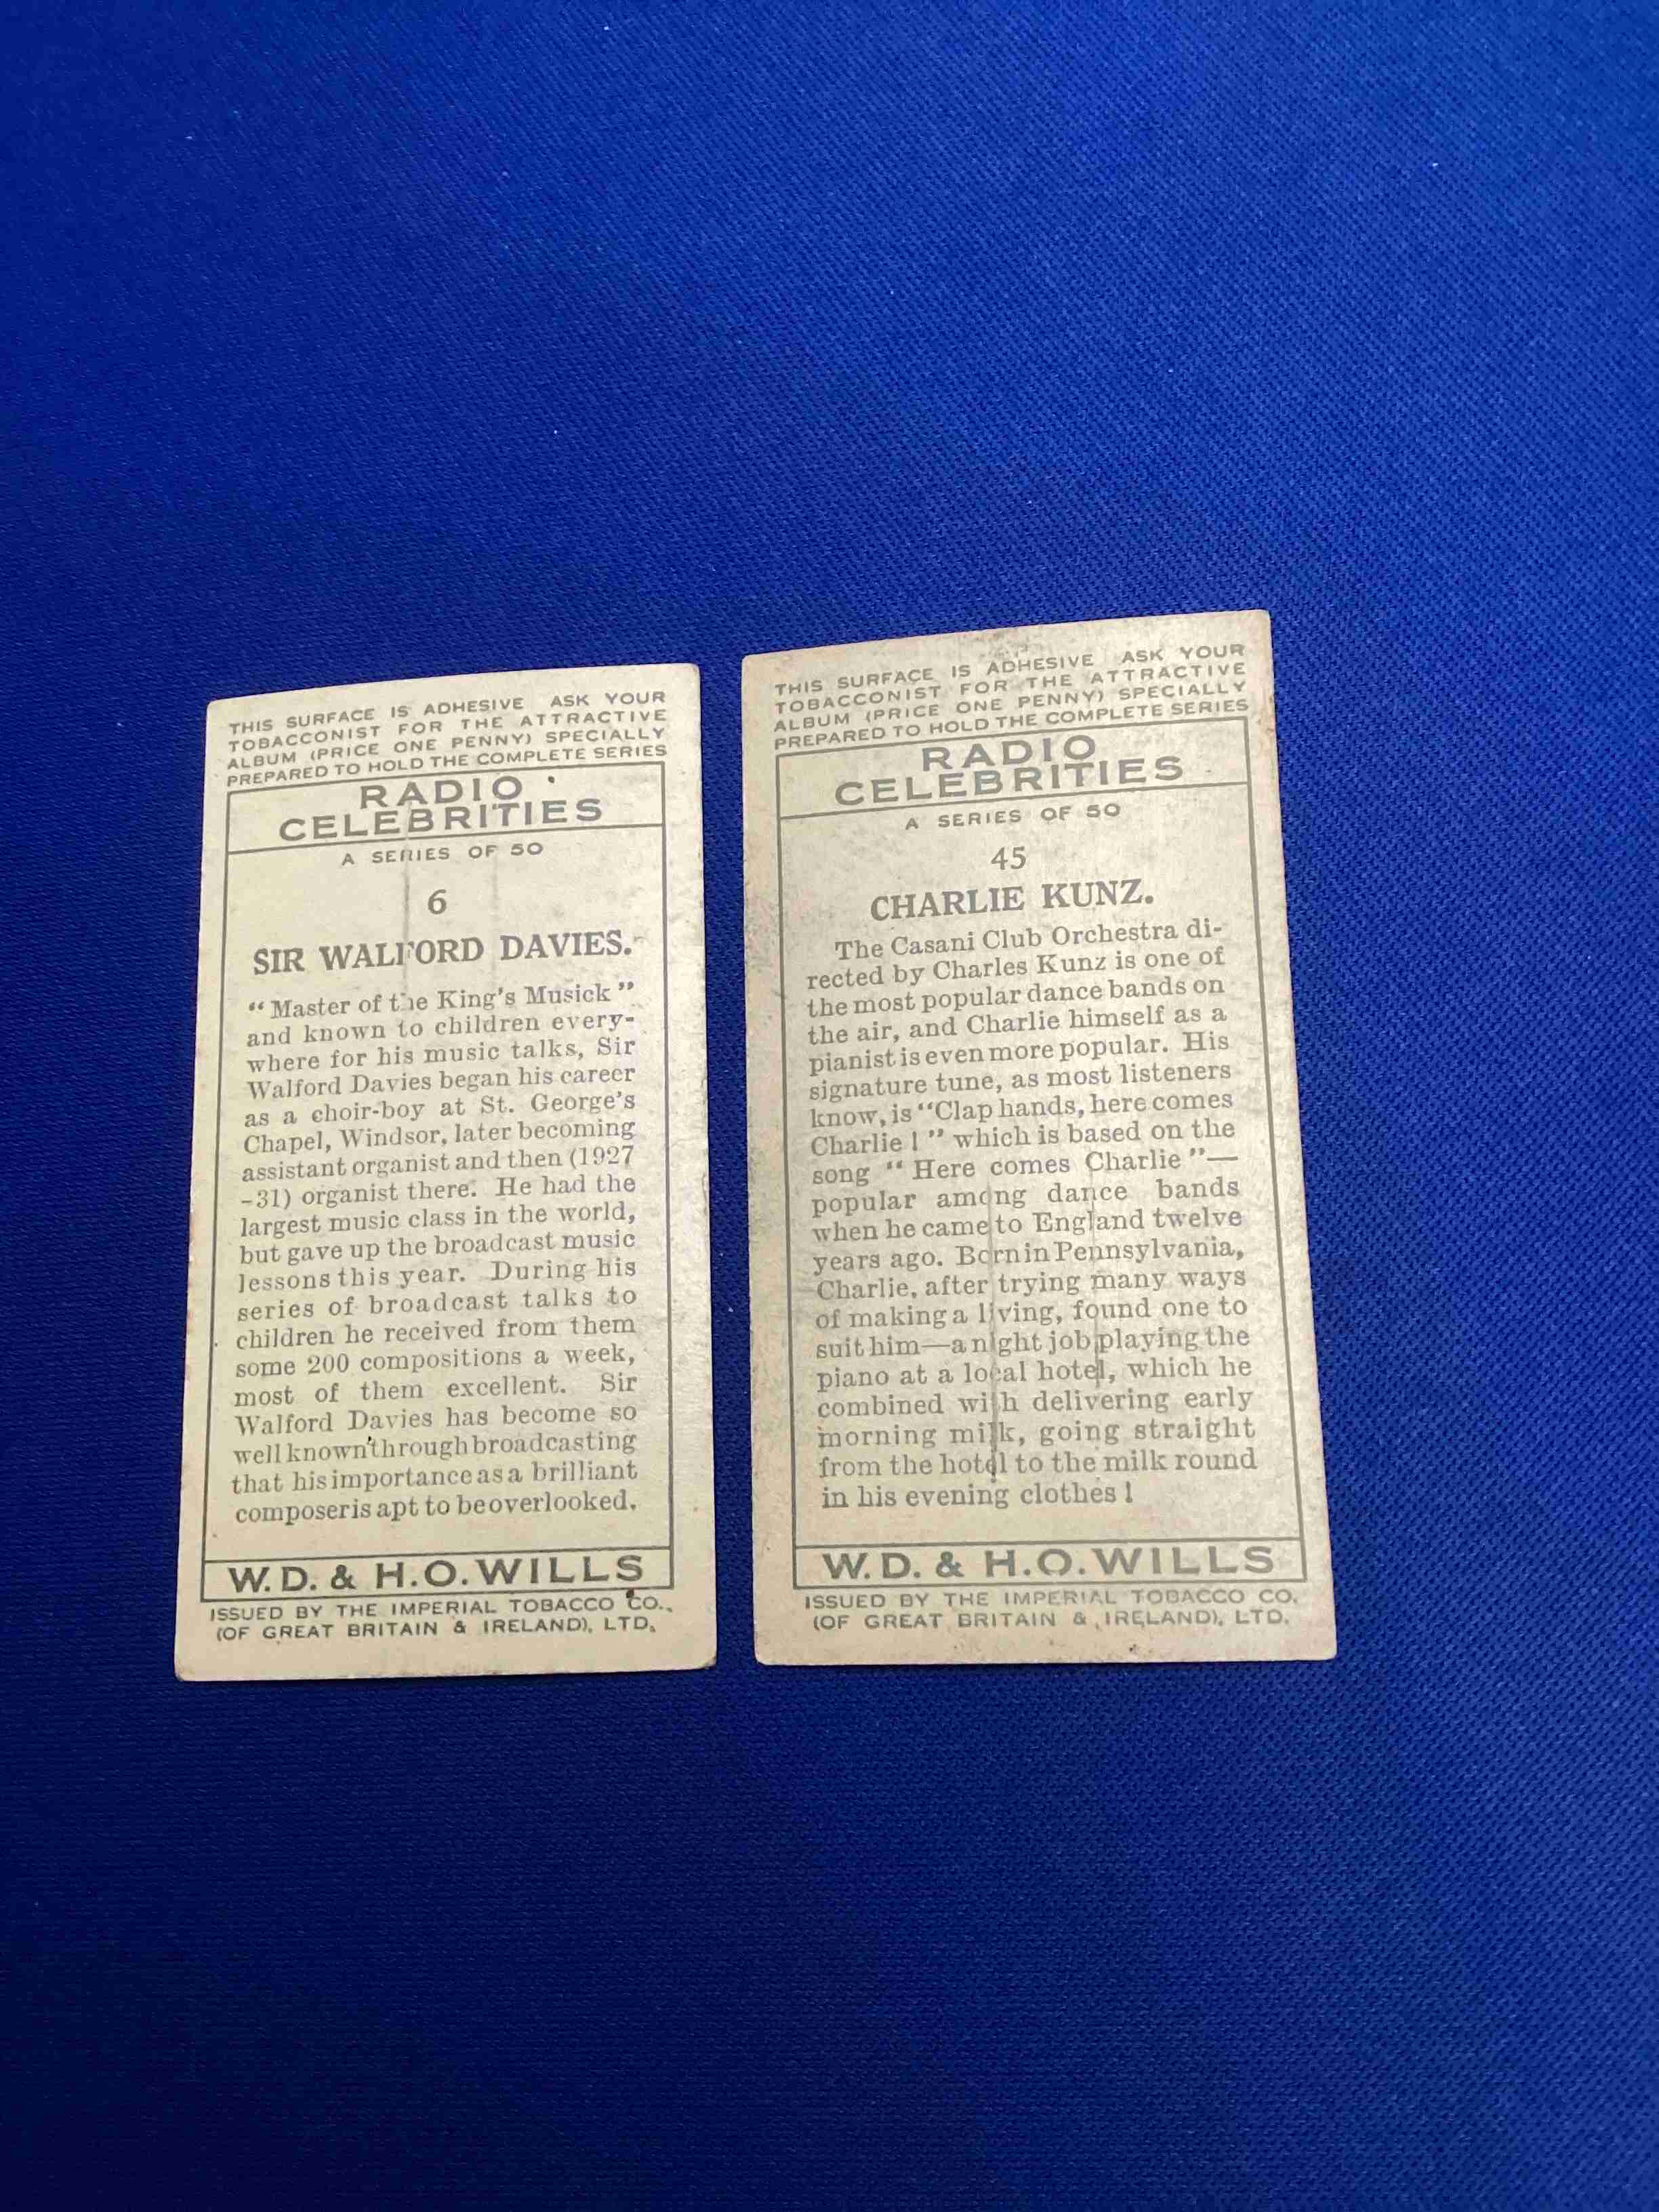 THIS SURFACE IS ADHESIVE ASK YOUR
TOBACCONIST FOR THE ATTRACTIVE
ALBUM (PRICE ONE PENNY) SPECIALLY
PREPARED TO HOLD THE COMPLETE SERIES
RADIO
CELEBRITIES
A SERIES OF 50
6
SIR WALFORD DAVIES.
"Master of the King's Musick"
and known to children every-
where for his music talks, Sir
Walford Davies began his career
as a choir-boy at St. George's
Chapel, Windsor, later becoming
assistant organist and then (1927
-31) organist there. He had the
largest music class in the world,
but gave up the broadcast music
lessons this year. During his
series of broadcast talks to
children he received from them
some 200 compositions a week,
most of them excellent. Sir
Walford Davies has become so
well known through broadcasting
that his importance as a brilliant
composer is apt to be overlooked.
W.D. & H.O. WILLS
ISSUED BY THE IMPERIAL TOBACCO CO.,
(OF GREAT BRITAIN & IRELAND), LTD.
THIS SURFACE IS ADHESIVE ASK YOUR
TOBACCONIST FOR THE ATTRACTIVE
ALBUM (PRICE ONE PENNY) SPECIALLY
PREPARED TO HOLD THE COMPLETE SERIES
RADIO
CELEBRITIES
A SERIES OF 50
45
CHARLIE KUNZ.
The Casani Club Orchestra di-
rected by Charles Kunz is one of
the most popular dance bands on
the air, and Charlie himself as a
pianist is even more popular. His
signature tune, as most listeners
know, is "Clap hands, here comes
Charlie!" which is based on the
song "Here comes Charlie"—
popular among dance bands
when he came to England twelve
years ago. Born in Pennsylvania,
Charlie, after trying many ways
of making a living, found one to
suit him—a night job playing the
piano at a local hotel, which he
combined with delivering early
morning milk, going straight
from the hotel to the milk round
in his evening clothes!
W.D. & H.O. WILLS
ISSUED BY THE IMPERIAL TOBACCO CO.
(OF GREAT BRITAIN & IRELAND), LTD.